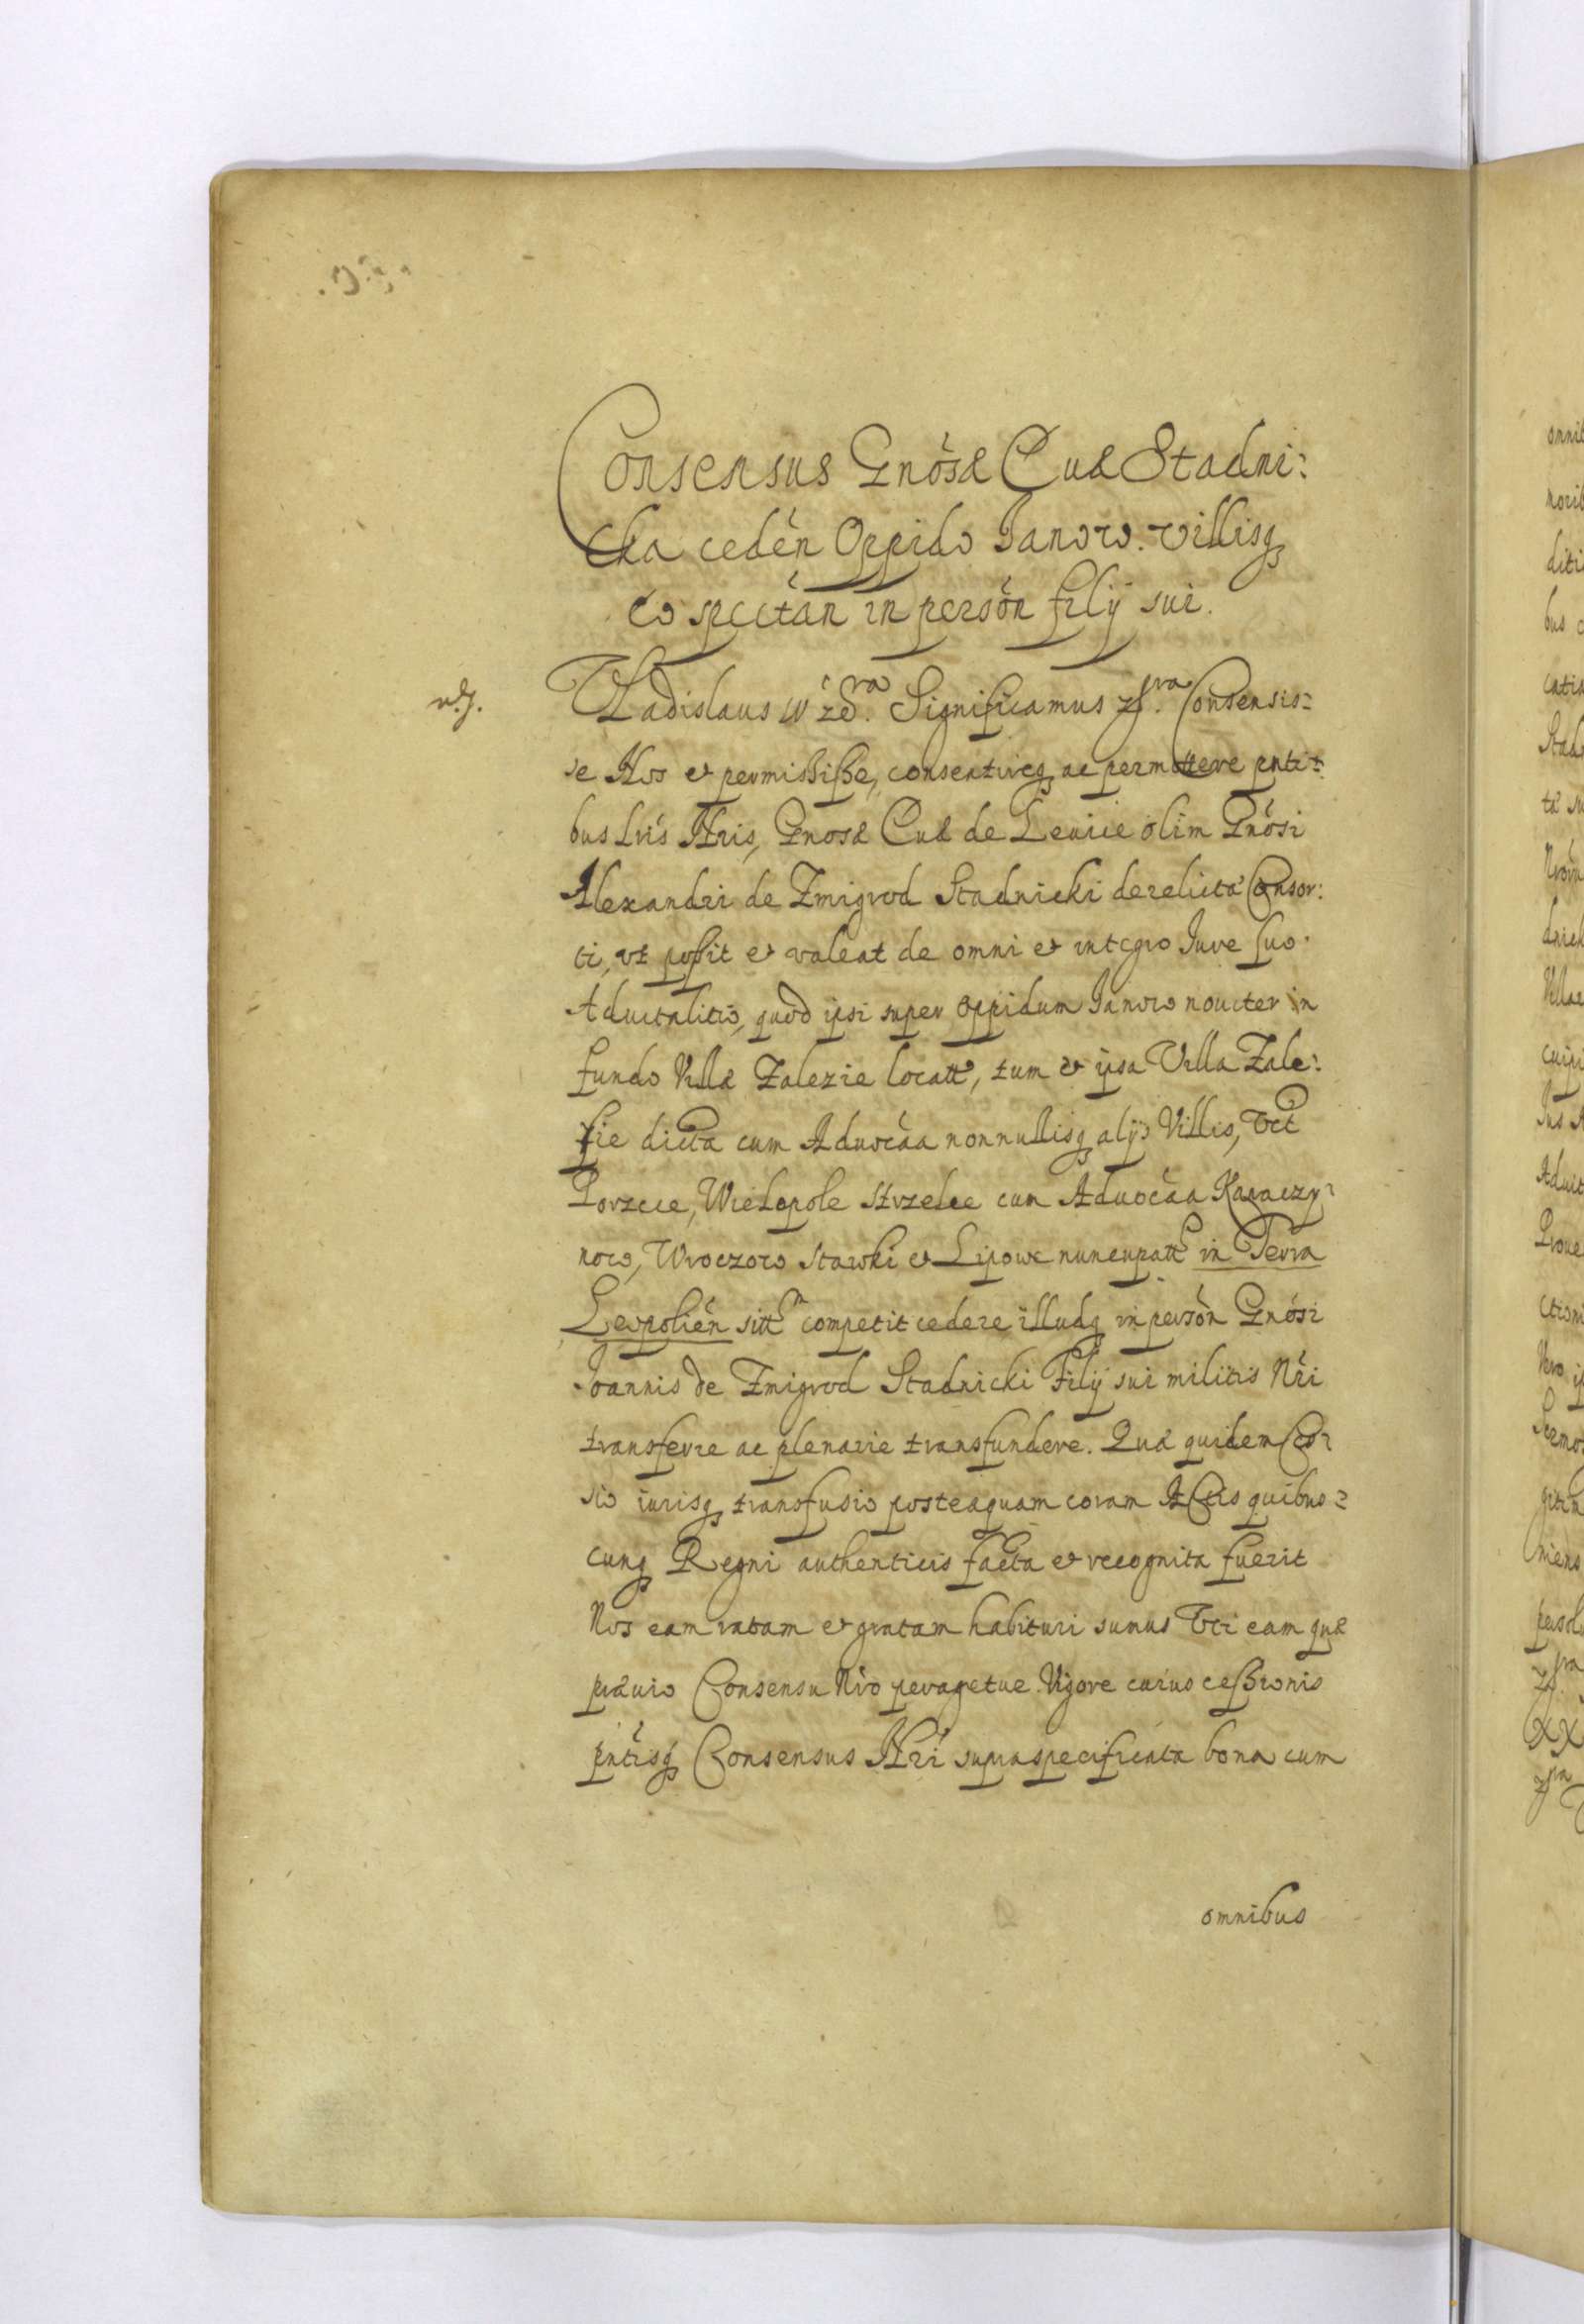 Consensus Gnosæ Euæ Stadni:
cka ceden Oppido Janow. villisq3
eo spectan in person filij sui.
Vladislaus IV zd.ra Significamus zs.ra Consensis:
se Nos et permisisse, consentireq3 ac permittere pnti:
bus Lris Nris, Gnosæ Euæ de olim Gnosi
Alexandri de Zmigrod Stadnicki derelictæ Consor:
ti, vt possit et valeat de omni et integro Jure suo
Aduitalitio, quod ipsi super Oppidum Janow nouiter in
fundo Villæ Zalezie locatt, tum et ipsa Villa Zale:
sie dicta cum Aduocãa nonnullisq3 alijs Villis, vtt
Porzcie, Wielopole Strzelce cum Aduocãa Karaczy:
now, Wroczow Stawki et Lipowe nuncupatt in Terra
Leopolien sitt competit cedere illudq3 in person Gnosi
Joannis de Zmigrod Stadnicki Filij sui militis Nri
transferre ac plenarie transfundere. Quæ quidem Ces:
sio iurisq3 transfusio posteaquam coram Actis quibus:
cunq3 Regni authenticis facta et recognita fuerit
Nos eam ratam et gratam habituri sumus Vti eam quæ
præuio Consensu Nro peragetur. Vigore cuius cessionis
pntisq3 Consensus Nri supraspecificata bona cum
omnibus